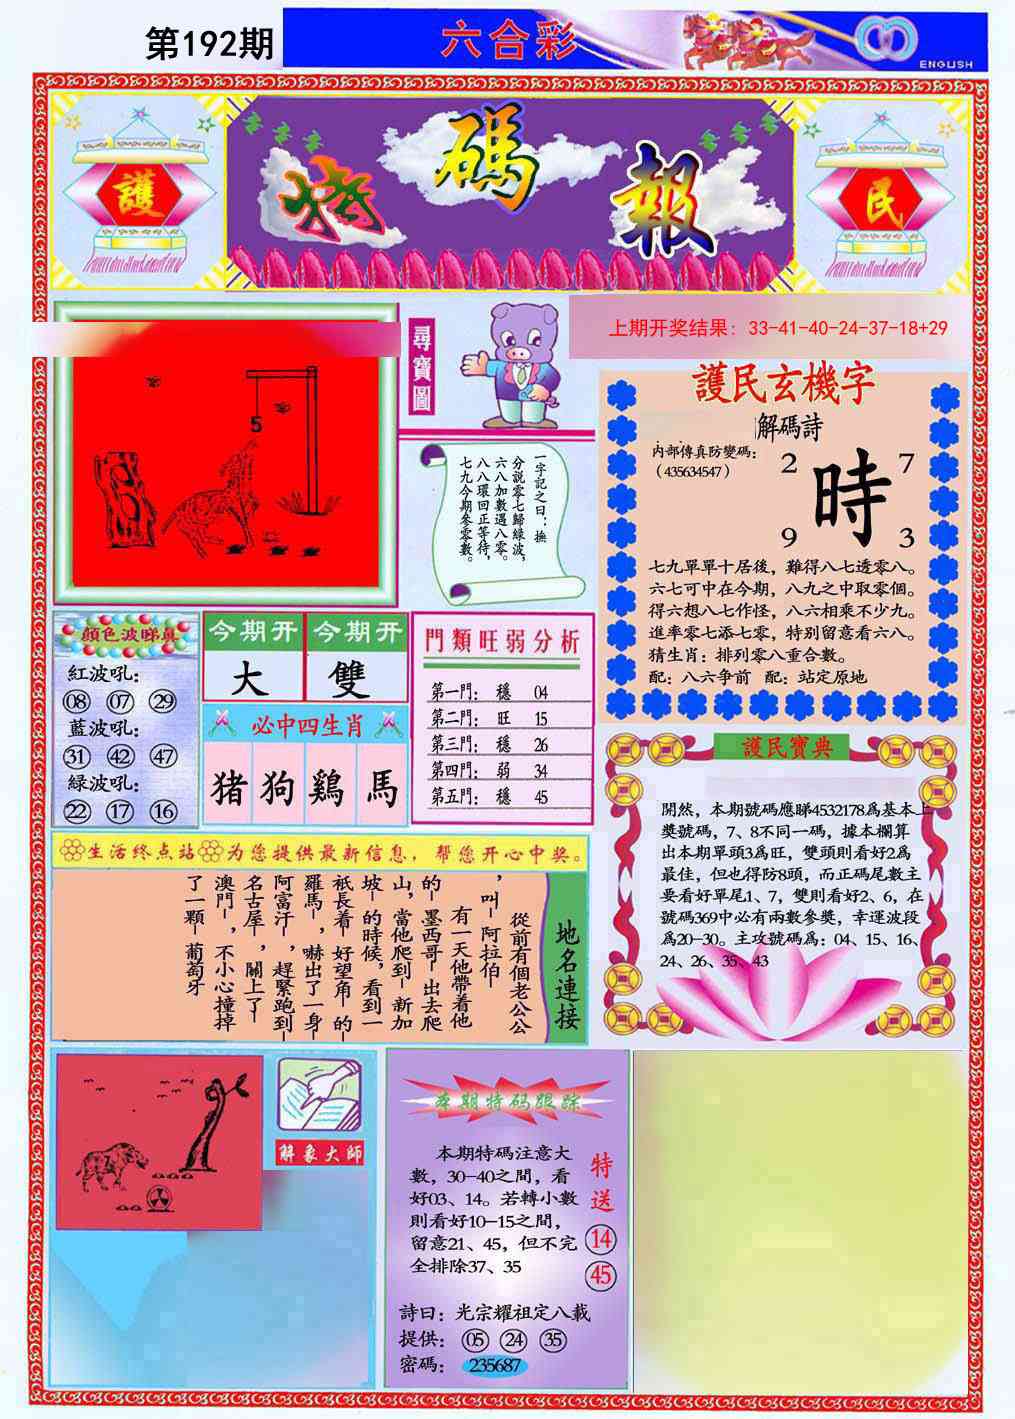 第192期
六合彩
ENGLISH
護
特碼報
民
上期开奖结果：33-41-40-24-37-18+29
尋寶圖
5
一字記之曰：撫
分説零七歸綠波，
六八加數過八零。
八八環回正等待，
七九今期參零數。
護民玄機字
解碼詩
内部傳真防變碼：
（435634547）
2 7
時
9 3
七九單單十居後，難得八七透零八。
六七可中在今期，八九之中取零個。
得六想八七作怪，八六相乘不少九。
進率零七添七零，特别留意看六八。
猜生肖：排列零八重合數。
配：八六争前 配：站定原地
顔色波睇真
紅波吼：
08 07 29
藍波吼：
31 42 47
緑波吼：
22 17 16
今期开 今期开
大 雙
必中四生肖
猪 狗 鷄 馬
門類旺弱分析
第一門： 穩 04
第二門： 旺 15
第三門： 穩 26
第四門： 弱 34
第五門： 穩 45
護民寶典
開然，本期號碼應睇4532178爲基本上
獎號碼，7、8不同一碼，據本欄算
出本期單頭3爲旺，雙頭則看好2爲
最佳，但也得防8頭，而正碼尾數主
要看好單尾1、7，雙則看好2、6，在
號碼369中必有兩數參獎，幸運波段
爲20-30。主攻號碼爲：04、15、16、
24、26、35、43
生活终点站 为您提供最新信息，帮您开心中奖。
地名連接
從前有個老公公
，叫—阿拉伯—
有一天他帶着他
的—墨西哥—出去爬
山，當他爬到—新加
坡—的時候，看到一
祇長着—好望角—的
羅馬—，嚇出了一身—
阿富汗—，趕緊跑到—
名古屋—，關上了—
澳門—，不小心撞掉
了一顆—葡萄牙
解象大師
本期特码跟踪
本期特碼注意大
數，30-40之間，看
好03、14。若轉小數
則看好10-15之間，
留意21、45，但不完
全排除37、35
特送
14
45
詩曰：光宗耀祖定八載
提供：05 24 35
密碼：235687